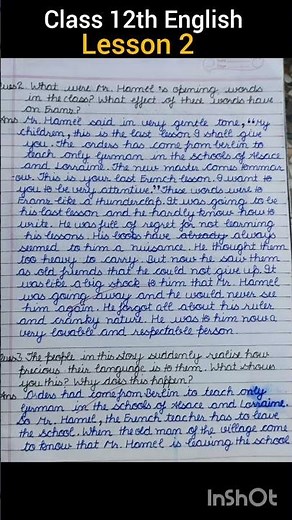 Class 12th English
Lesson 2
Ques2. What were Mr. Hamel's opening words
in the class? What effect of these words have
on Franz?
Ans Mr. Hamel said in very gentle tone, "My
children, this is the last lesson I shall give
you. The orders has come from berlin to
teach only german in the schools of Alsace
and Lorraine. The new master comes tommar
ow. This is your last French lesson. I want to
you to be very attentive." These words were to
Franz like a thunderclap. It was going to be
his last lesson and he hardly know how to
write. He was full of regret for not learning
his lessons. His books have already always
seemed to him a nuisance. He thought them
too heavy to carry. But now he saw them
as old friends that he could not give up. It
was like a big shock to him that Mr. Hamel
was going away and he would never see
him again. He forgot all about his ruler
and cranky nature. He was to him now a
very lovable and respectable person
Ques3. The people in this story suddenly realise how
precious their language is to them. What shows
you this? Why does this happen?
Ans Orders had come from Berlin to teach only
german in the schools of Alsace and Lorraine.
So Mr. Hamel, the French teacher has to leave
the school. When the old man of the village come
to know that Mr. Hamel is leaving the school
InShOt